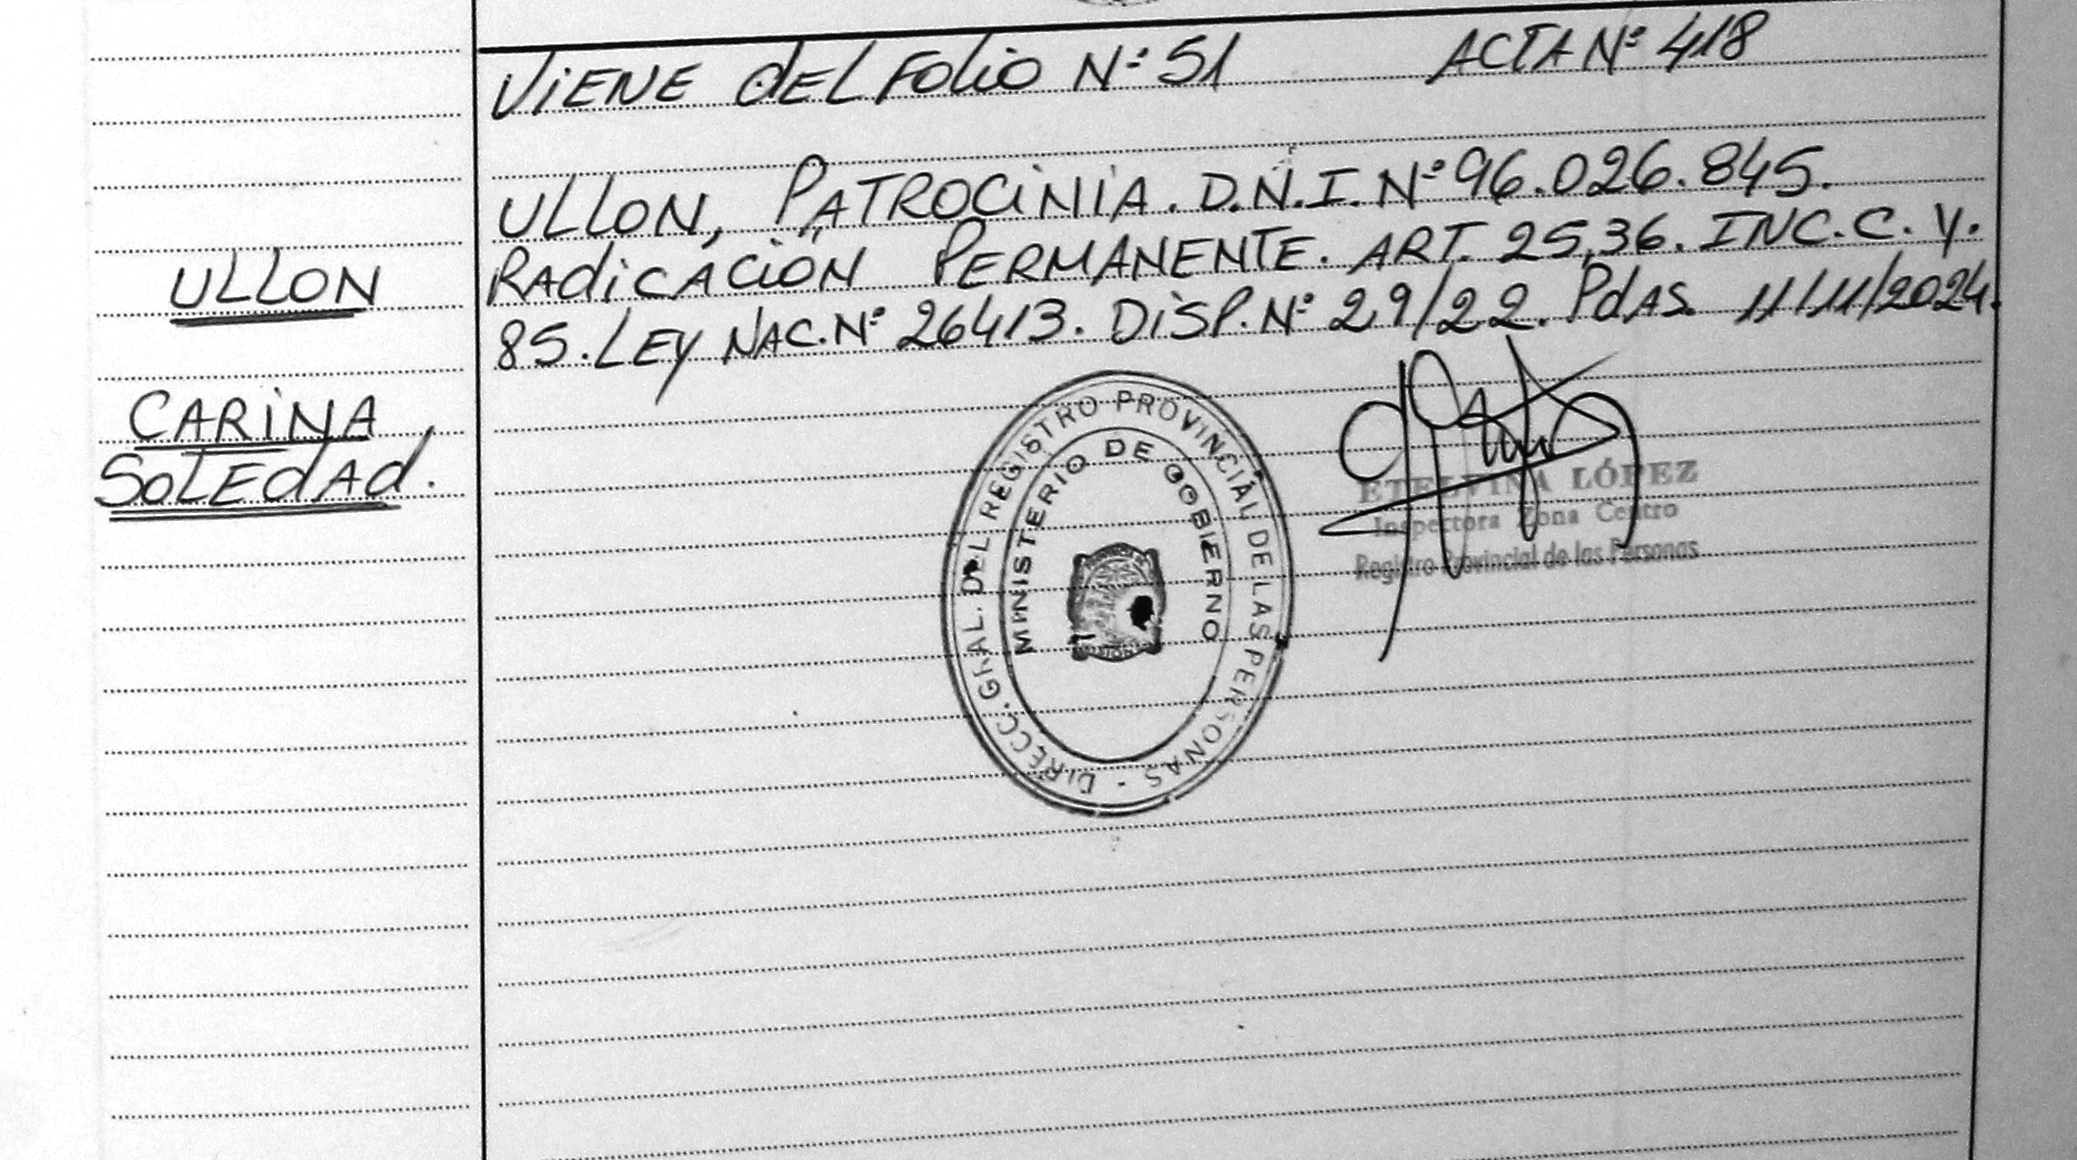 VIENE DEL FOLIO Nº 51 ACTA Nº 418
ULLON, PATROCINIA. D.N.I. Nº 96.026.845.
RADICACIÓN PERMANENTE. ART. 25,36. INC.C. Y.
85. LEY NAC. Nº 26413. DISP. Nº 29/22. PDAS. 11/11/2024.
ULLON
CARINA
SOLEDAD.
DIRECC. GRAL. DEL REGISTRO PROVINCIAL DE LAS PERSONAS -
MINISTERIO DE GOBIERNO
ETELVINA LÓPEZ
Inspectora Zona Centro
Registro Provincial de las Personas